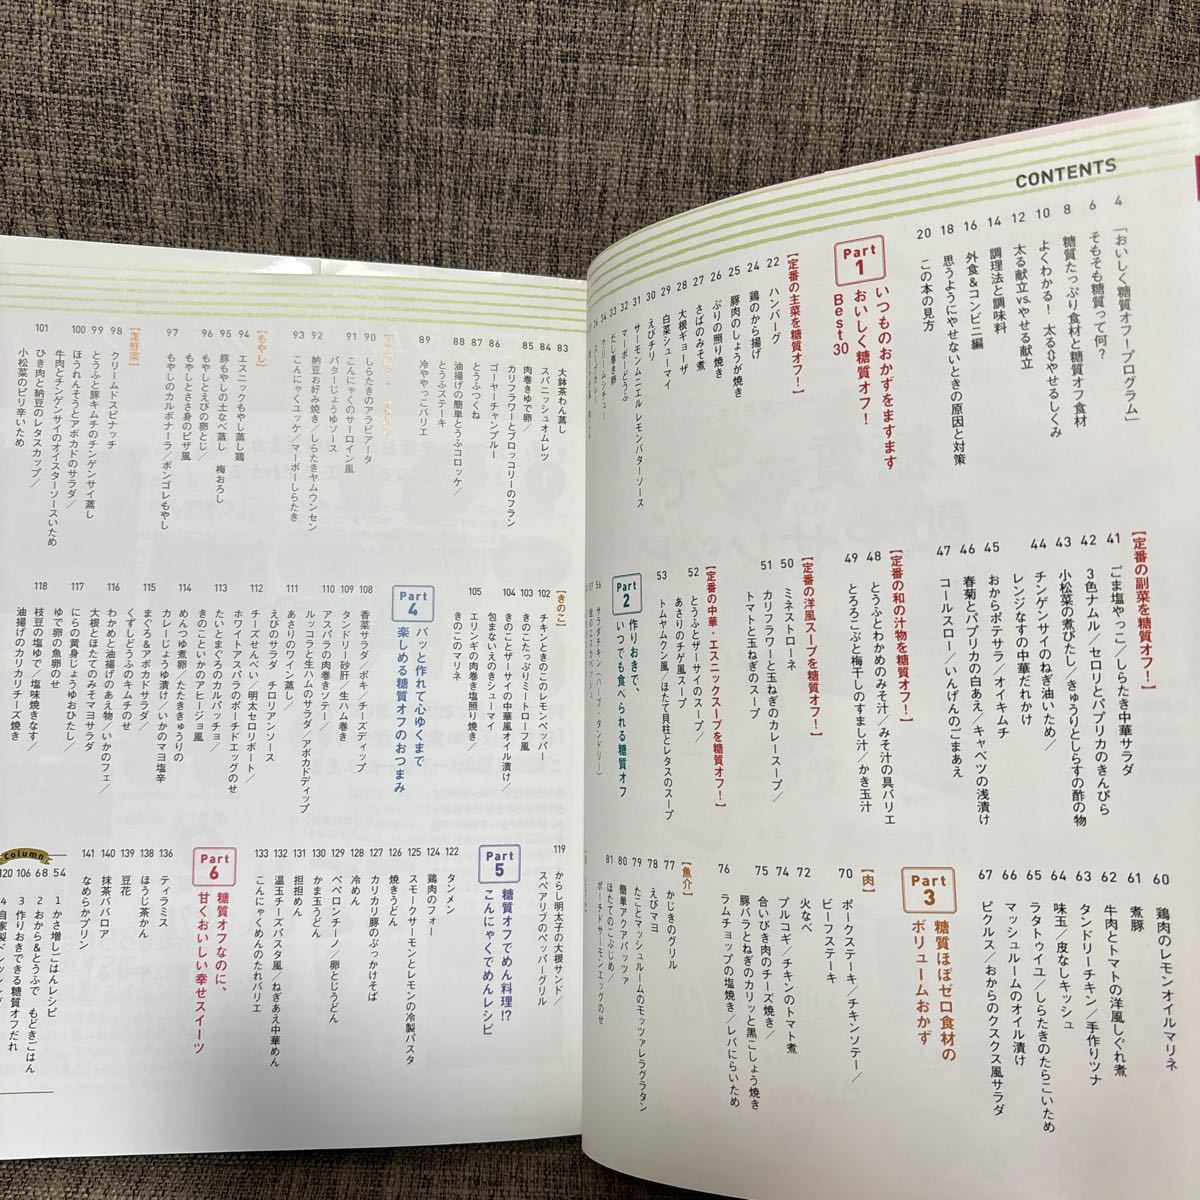 CONTENTS
4 「おいしく糖質オフ」プログラム
6 そもそも糖質って何?
8 糖質たっぷり食材と糖質オフ食材
10 よくわかる! 太る⇔やせるしくみ
12 太る献立vs.やせる献立
14 調理法と調味料
16 外食&コンビニ編
18 思うようにやせないときの原因と対策
20 この本の見方
Part 1
いつものおかずをますます
おいしく糖質オフ!
Best30
【定番の主菜を糖質オフ!】
22 ハンバーグ
24 鶏のから揚げ
25 豚肉のしょうが焼き
26 ぶりの照り焼き
27 さばのみそ煮
28 大根ギョーザ
29 白菜シューマイ
30 えびチリ
31 サーモンムニエル レモンバターソース
32 マーボーどうふ
33 だし巻き卵
34 クリームシチュー
【定番の副菜を糖質オフ!】
41 ごま塩やっこ/しらたき中華サラダ
42 3色ナムル/セロリとパプリカのきんぴら
43 小松菜の煮びたし/きゅうりとしらすの酢の物
44 チンゲンサイのねぎ油いため/
レンジなすの中華だれかけ
45 おからポテサラ/オイキムチ
46 春菊とパプリカの白あえ/キャベツの浅漬け
47 コールスロー/いんげんのごまあえ
【定番の和の汁物を糖質オフ!】
48 とうふとわかめのみそ汁/みそ汁の具バリエ
49 とろろこぶと梅干しのすまし汁/かき玉汁
【定番の洋風スープを糖質オフ!】
50 ミネストローネ
51 カリフラワーと玉ねぎのカレースープ/
トマトと玉ねぎのスープ
【定番の中華・エスニックスープを糖質オフ!】
52 とうふとザーサイのスープ/
あさりのチゲ風スープ
53 トムヤムクン風/ほたて貝柱とレタスのスープ
Part 2
作りおきで、
いつでも食べられる糖質オフ
56 サラダチキン(ハーブ・タンドリー)
60 鶏肉のレモンオイルマリネ
61 煮豚
62 牛肉とトマトの洋風しぐれ煮
63 タンドリーチキン/手作りツナ
64 味玉/皮なしキッシュ
65 ラタトゥイユ/しらたきのたらこいため
66 マッシュルームのオイル漬け
67 ピクルス/おからのクスクス風サラダ
Part 3
糖質ほぼゼロ食材の
ボリュームおかず
【肉】
70 ポークステーキ/チキンソテー/
ビーフステーキ
72 火なべ
74 プルコギ/チキンのトマト煮
75 合いびき肉のチーズ焼き/
豚バラとねぎのカリッと黒こしょう焼き
76 ラムチョップの塩焼き/レバにらいため
【魚介】
77 かじきのグリル
78 えびマヨ
79 たことマッシュルームのモッツァレラグラタン
80 簡単アクアパッツァ
81 ほたてのこぶじめ/
ポーチドサーモンエッグのせ
83 大鉢茶わん蒸し
84 スパニッシュオムレツ
85 肉巻きゆで卵/
カリフラワーとブロッコリーのフラン
86 ゴーヤーチャンプルー
87 とうふつくね
88 油揚げの簡単とうふコロッケ/
とうふステーキ
89 冷ややっこバリエ
90 しらたきのアラビアータ
91 こんにゃくのサーロイン風
バターじょうゆソース
92 納豆お好み焼き/しらたきヤムウンセン
93 こんにゃくユッケ/マーボーしらたき
【もやし】
94 エスニックもやし蒸し鶏
95 豚もやしの土なべ蒸し 梅おろし
96 もやしとえびの卵とじ/
もやしとささ身のピザ風
97 もやしのカルボナーラ/ボンゴレもやし
【葉野菜】
98 クリームドスピナッチ
99 とうふと豚キムチのチンゲンサイ蒸し
100 ほうれんそうとアボカドのサラダ/
牛肉とチンゲンサイのオイスターソースいため
101 ひき肉と納豆のレタスカップ/
小松菜のピリ辛いため
【きのこ】
102 チキンときのこのレモンペッパー
103 きのこたっぷりミートローフ風
104 きのことザーサイの中華風オイル漬け/
包まないえのきシューマイ
105 エリンギの肉巻き塩照り焼き/
きのこのマリネ
Part 4
パッと作れて心ゆくまで
楽しめる糖質オフのおつまみ
108 香菜サラダ/ポキ/チーズディップ
109 タンドリー砂肝/生ハム巻き
110 アスパラの肉巻きソテー/
ルッコラと生ハムのサラダ/アボカドディップ
111 あさりのワイン蒸し/
えびのサラダ チロリアンソース
112 チーズせんべい/明太セロリボート/
ホワイトアスパラのポーチドエッグのせ
113 たいとまぐろのカルパッチョ/
きのこといかのアヒージョ風
114 めんつゆ煮卵/たたききゅうりの
カレーじょうゆ漬け/いかのマヨ塩辛
115 まぐろ&アボカドサラダ/
くずしどうふのキムチのせ
116 わかめと油揚げのあえ物/いかのフェ/
大根とほたてのみそマヨサラダ
117 にらの黄身じょうゆおひたし/
ゆで卵の魚卵のせ
118 枝豆の塩ゆで/塩味焼きなす/
油揚げのカリカリチーズ焼き
119 からし明太子の大根サンド/
スペアリブのペッパーグリル
Part 5
糖質オフでめん料理!?
こんにゃくでめんレシピ
122 タンメン
124 鶏肉のフォー
125 スモークサーモンとレモンの冷製パスタ
126 焼きうどん
127 カリカリ豚のぶっかけそば
128 冷めん
129 ペペロンチーノ/卵とじうどん
130 かま玉うどん
131 担担めん
132 温玉チーズパスタ風/ねぎあえ中華めん
133 こんにゃくめんのたれバリエ
Part 6
糖質オフなのに、
甘くおいしい幸せスイーツ
136 ティラミス
138 ほうじ茶かん
139 豆花
140 抹茶ババロア
141 なめらかプリン
Column
54 1 かさ増しごはんレシピ
68 2 おから&とうふで もどきごはん
106 3 作りおきできる糖質オフだれ
120 4 自家製ドレッシング